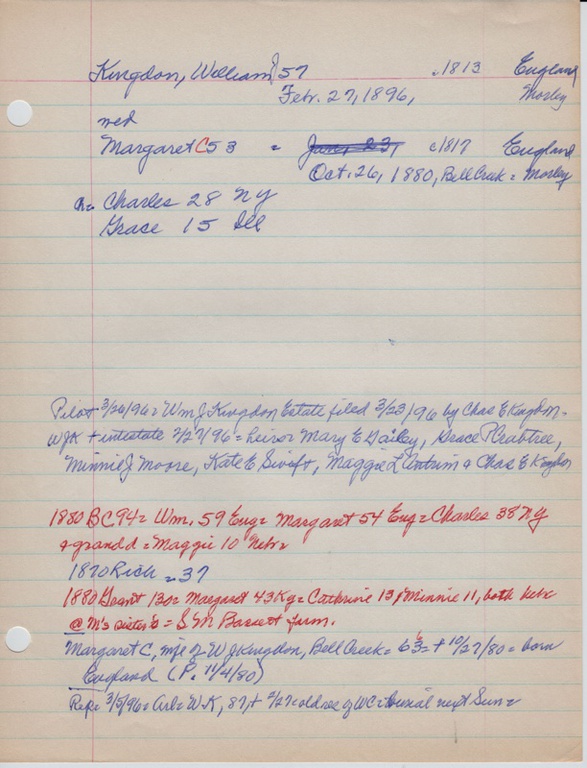 Kingdon, William J 57 c1813 England
Feb. 27, 1896, Morley
med
Margaret C 53 = June 23, c1817 England
Oct. 26, 1880, Bell Creek = Morley
Ch= Charles 28 NY
Grace 15 Ill
Pilot 3/26/96 = Wm J Kingdon Estate filed 3/23/96 by Chas E Kingdon.
WJK + intestate 2/27/96 = heirs Mary E Dailey, Grace P Crabtree,
Minnie J Moore, Kate E Swift, Maggie L Antrim & Chas E Kingdon
1880 BC 94= Wm. 59 Eng= Margaret 54 Eng= Charles 38 NY
+ grandd = Maggie 10 Nebr=
1870 Rich = 37
1880 Grant 130= Margaret 43 Ky= Cathrine 13, Minnie 11, both Nebr
@ M's sister's = S M Bassett farm.
Margaret C, wife of W J Kingdon, Bell Creek= 63= + 10/27/80 = born
England (P. 11/4/80)
Rep= 3/5/96= Arl= W.K, 87, + 2/27 = old res of WC = burial next Sun=